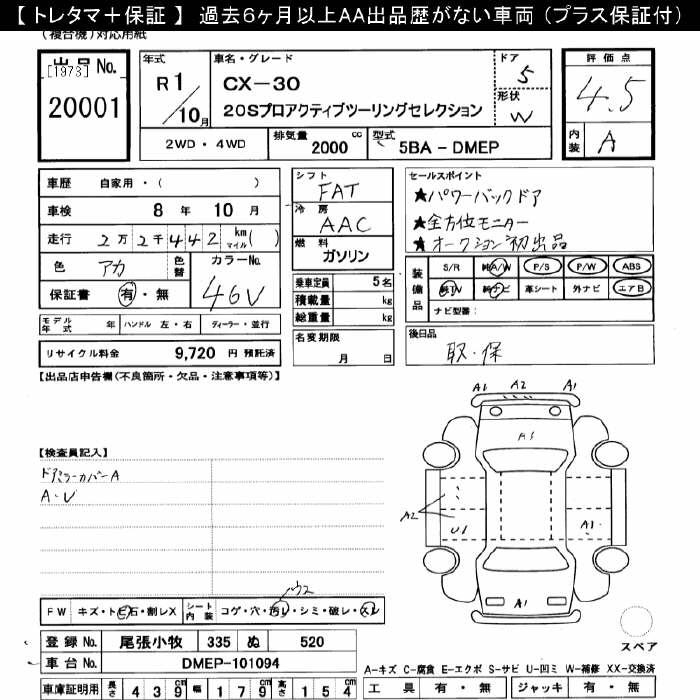 【トレタマ＋保証】 過去6ヶ月以上AA出品歴がない車両（プラス保証付）
(複合機)対応用紙
出品No.
[1973]
20001
年式
R1/10月
車名・グレード
CX-30
20Sプロアクティブツーリングセレクション
ドア
5
形状
W
評価点
4.5
内装
A
2WD・4WD
排気量 2000 cc
型式 5BA-DMEP
車歴 自家用・( )
車検 8年10月
走行 2万2千442 km マイル( )
色 アカ
色替
カラーNo.
46V
保証書 有・無
シフト
FAT
冷房
AAC
燃料
ガソリン
乗車定員 5名
積載量 kg
総重量 kg
セールスポイント
★パワーバックドア
★全方位モニター
★オークション初出品
装備品
S/R 純A/W P/S P/W ABS
純TV 純ナビ 革シート 外ナビ エアB
ナビ型番:
モデル年式 年 ハンドル 左・右 ディーラー・並行
リサイクル料金 9,720 円 預託済
名変期限
月 日
後日品
取・保
【出品店申告欄(不良箇所・欠品・注意事項等)】
A1 A2 A1
A1
【検査員記入】
ドアミラーカバーA
A・U
A2
U1
A1
A1
FW キズ・トビ石・割レX
シート内装 コゲ・穴・汚レ・シミ・破レ・スレ
スペア
登録No. 尾張小牧 335 ぬ 520
車台No. DMEP-101094
車庫証明用 長さ 439 cm 幅 179 cm 高さ 154 cm
A-キズ C-腐食 E-エクボ S-サビ U-凹ミ W-補修 XX-交換済
工具 有・無 ジャッキ 有・無